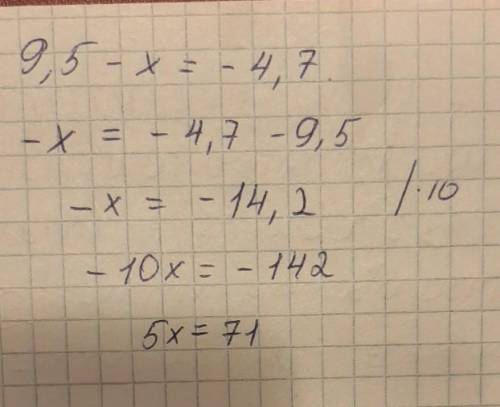 9,5 - x = - 4,7.
-x = - 4,7 - 9,5
-x = - 14,2 /·10
- 10x = - 142
5x = 71